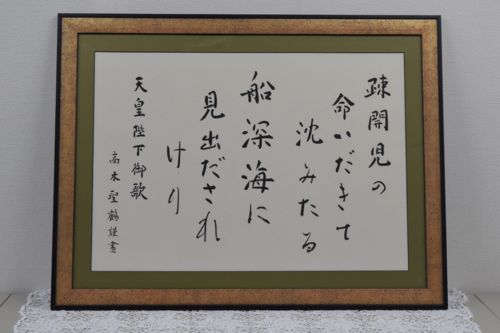 疎開児の
命いだきて
沈みたる
船深海に
見出だされ
けり
天皇陛下御歌
高木聖鶴謹書